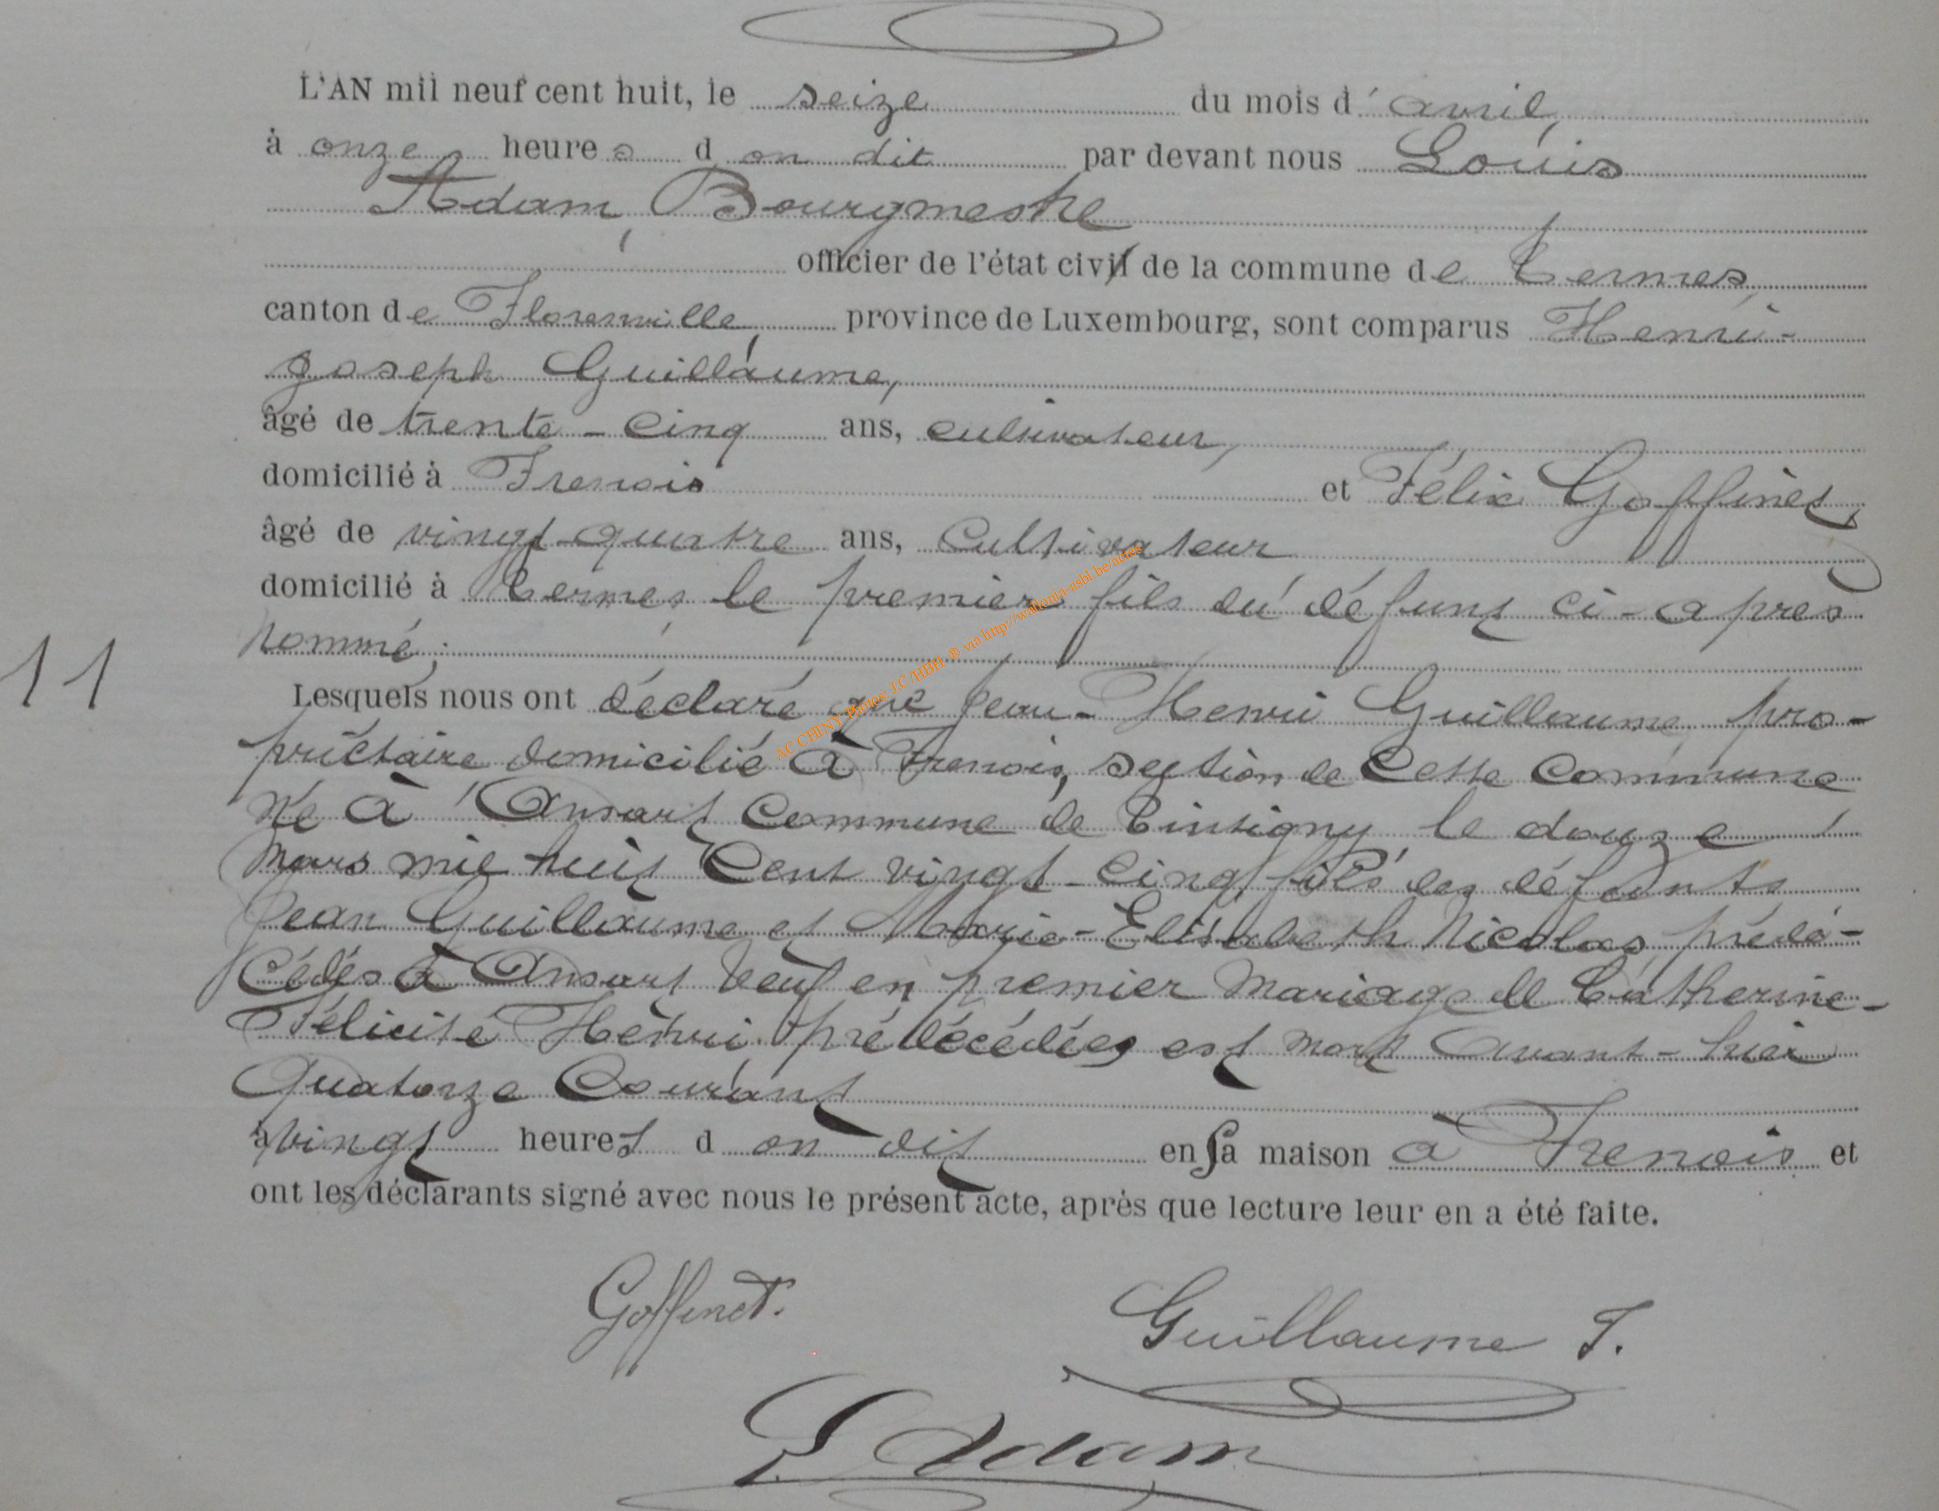 L'AN mil neuf cent huit, le seize du mois d'avril,
à onze heures d on dit par devant nous Louis
Adam, Bourgmestre
officier de l'état civil de la commune de Termes,
canton de Florenville, province de Luxembourg, sont comparus Henri-
Joseph Guillaume,
âgé de trente-cinq ans, cultivateur,
domicilié à Frenois et Félix Goffinet,
âgé de vingt-quatre ans, cultivateur
domicilié à Termes, le premier fils du défunt ci-après
nommé;
11
Lesquels nous ont déclaré que Jean-Henri Guillaume, pro-
priétaire domicilié à Frenois, section de cette commune
né à Ansart commune de Tintigny le douze
mars mil huit cent vingt-cinq, fils des défunts
Jean Guillaume et Marie-Elisabeth Nicolas, prédé-
cédés à Ansart veuf en premier mariage de Catherine-
Félicité Henri prédécédée, est mort avant-hier
quatorze courant
à vingt heures d on dit en sa maison à Frenois et
ont les déclarants signé avec nous le présent acte, après que lecture leur en a été faite.
Goffinet.
Guillaume J.
L Adam
AC CHINY Photos J.C/HBH ® via http://wallonia-asbl.be/actes